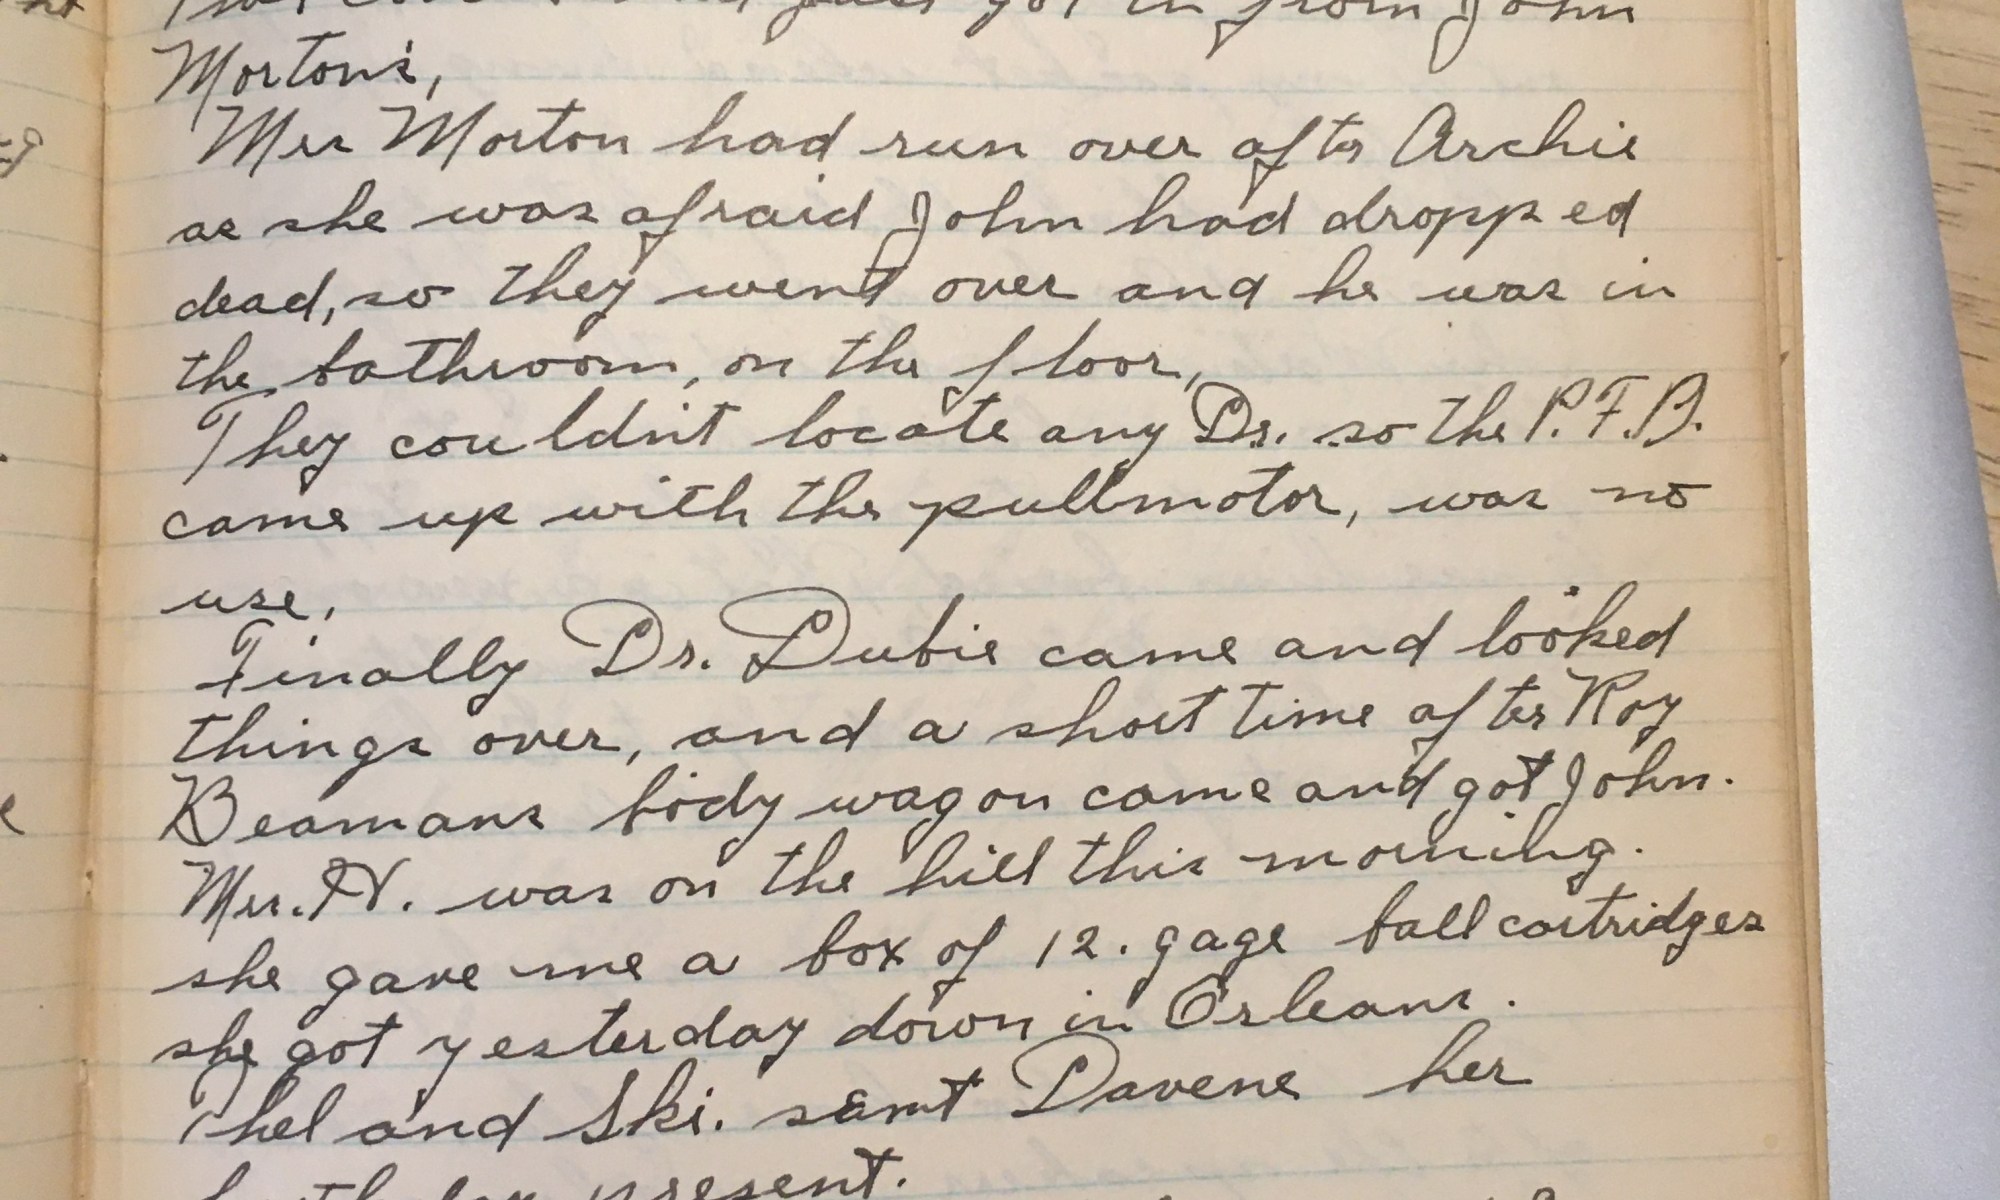 just got in from John
Morton's,
Mrs Morton had run over after Archie
as she was afraid John had dropped
dead, so they went over and he was in
the bathroom, on the floor,
They couldn't locate any Dr. so the P.F.D.
came up with the pullmotor, was no
use,
Finally Dr. Dubie came and looked
things over, and a short time after Roy
Beamans body wagon came and got John.
Mrs. N. was on the hill this morning.
she gave me a box of 12. gage ball cartridges
she got yesterday down in Orleans.
Thel and Ski. sent Davene her
birthday present.